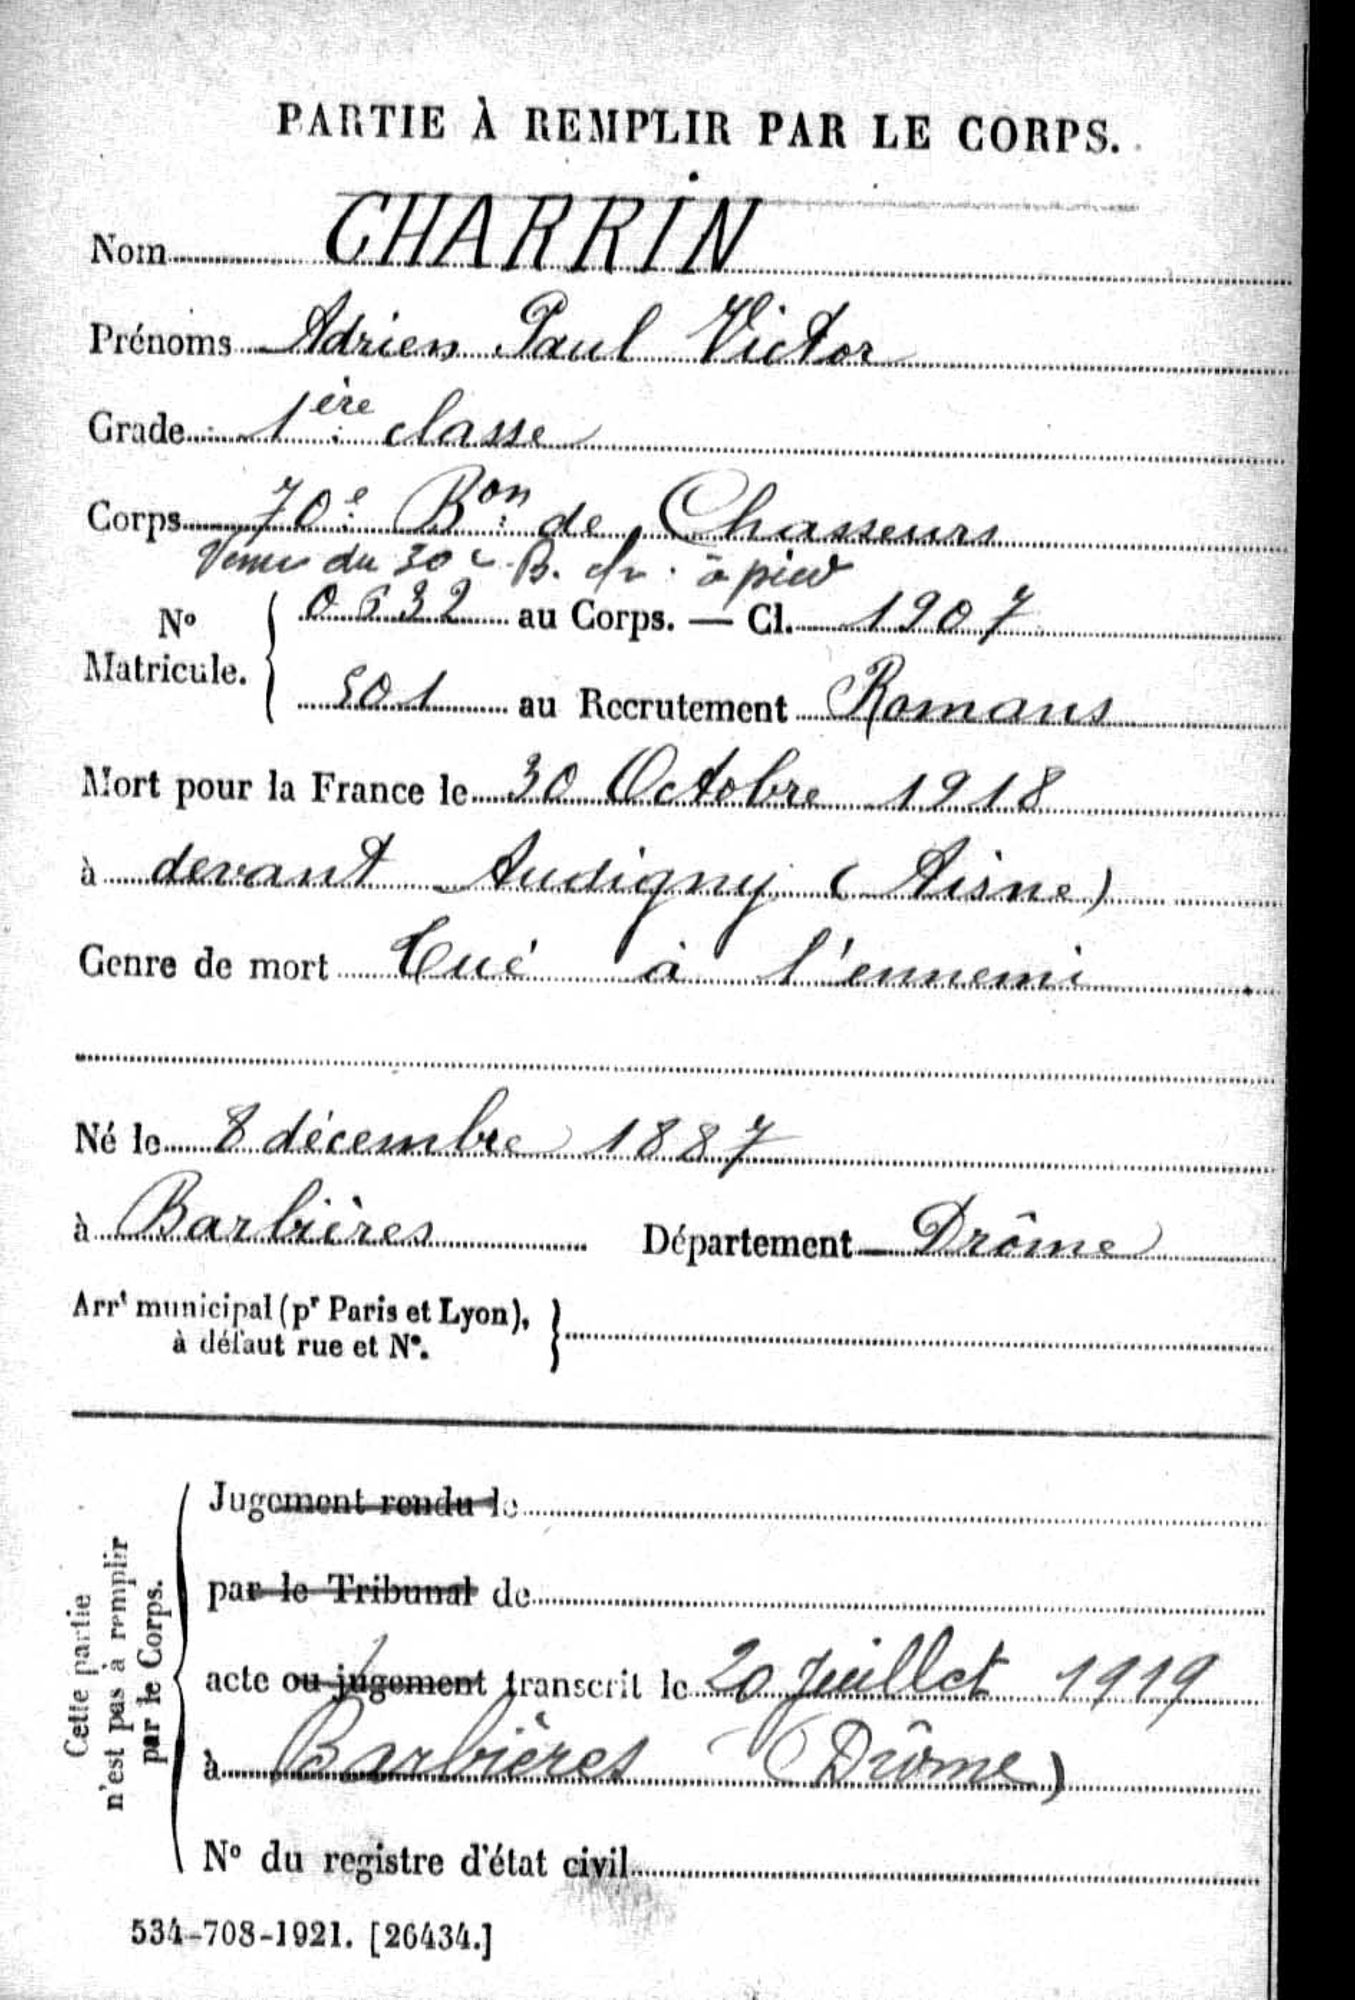 PARTIE À REMPLIR PAR LE CORPS.
Nom CHARRIN
Prénoms Adrien Paul Victor
Grade 1ère classe
Corps 70e Bon de Chasseurs
Venu du 30e B. ch. à pied
No Matricule. { 0632 au Corps. — Cl. 1907
501 au Recrutement Romans
Mort pour la France le 30 Octobre 1918
à devant Audigny (Aisne)
Genre de mort Tué à l'ennemi
Né le 8 décembre 1887
à Barbières Département Drôme
Arrt municipal (pr Paris et Lyon),
à défaut rue et No. }
Cette partie
n'est pas à remplir
par le Corps.
Jugement rendu le
par le Tribunal de
acte ou jugement transcrit le 20 Juillet 1919
à Barbières (Drôme)
No du registre d'état civil
534-708-1921. [26434.]